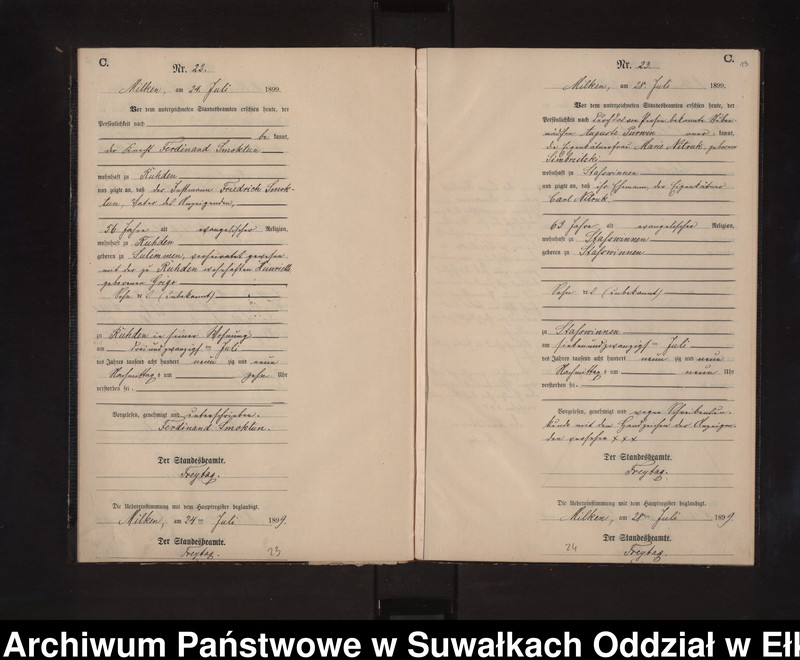 C.
Nr. 22.
Milken, am 24. Juli 1899.
Vor dem unterzeichneten Standesbeamten erschien heute, der
Persönlichkeit nach
be kannt,
der Knecht Ferdinand Smoktun
wohnhaft zu Ruhden
und zeigte an, daß der Instmann Friedrich Smok-
tun, Vater des Anzeigenden,
56 Jahre alt evangelischer Religion,
wohnhaft zu Ruhden
geboren zu Sulimmen, verheiratet gewesen
mit der zu Ruhden wohnhaften Henriette
geborenen Grigo
Sohn des (unbekannt)
zu Ruhden in seiner Wohnung
am dreiundzwanzigsten Juli
des Jahres tausend acht hundert neun zig und neun
Nachmittags um zehn Uhr
verstorben sei.
Vorgelesen, genehmigt und unterschrieben.
Ferdinand Smoktun.
Der Standesbeamte.
Freytag.
Die Uebereinstimmung mit dem Hauptregister beglaubigt.
Milken, am 24ten Juli 1899.
Der Standesbeamte.
Freytag.
23
C.
Nr. 23.
Milken, am 28. Juli 1899.
Vor dem unterzeichneten Standesbeamten erschien heute, der
Persönlichkeit nach durch die von Person bekannte Heben-
Auguste kannt,
die Eigenkäthnerfrau Marie Nitruk geborne
wohnhaft zu Staßwinnen
und zeigte an, daß ihr Ehemann, der Eigenkäthner
Carl Nitruk
63 Jahre alt evangelischer Religion,
wohnhaft zu Staßwinnen
geboren zu Staßwinnen
Sohn des (unbekannt)
zu Staßwinnen
am siebenundzwanzigsten Juli
des Jahres tausend acht hundert neun zig und neun
Nachmittags um neun Uhr
verstorben sei.
Vorgelesen, genehmigt und wegen Schreibensun-
kunde mit dem Handzeichen der Anzeigen-
den versehen + + +
Der Standesbeamte.
Freytag.
Die Uebereinstimmung mit dem Hauptregister beglaubigt.
Milken, am 28ten Juli 1899.
Der Standesbeamte.
Freytag.
24
Archiwum Państwowe w Suwałkach Oddział w Ełk